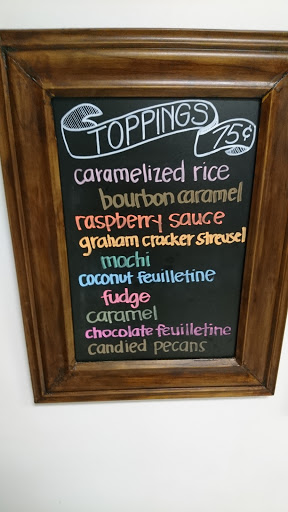 TOPPINGS 75¢
caramelized rice
bourbon caramel
raspberry sauce
graham cracker streusel
mochi
coconut feuilletine
fudge
caramel
chocolate feuilletine
candied pecans